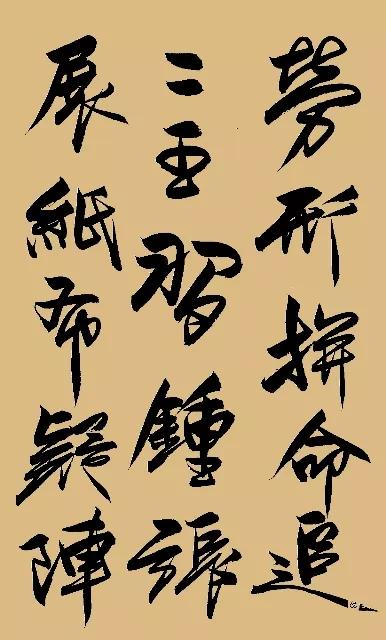 勞形拼命追
二王習鍾張
展紙布疑陣